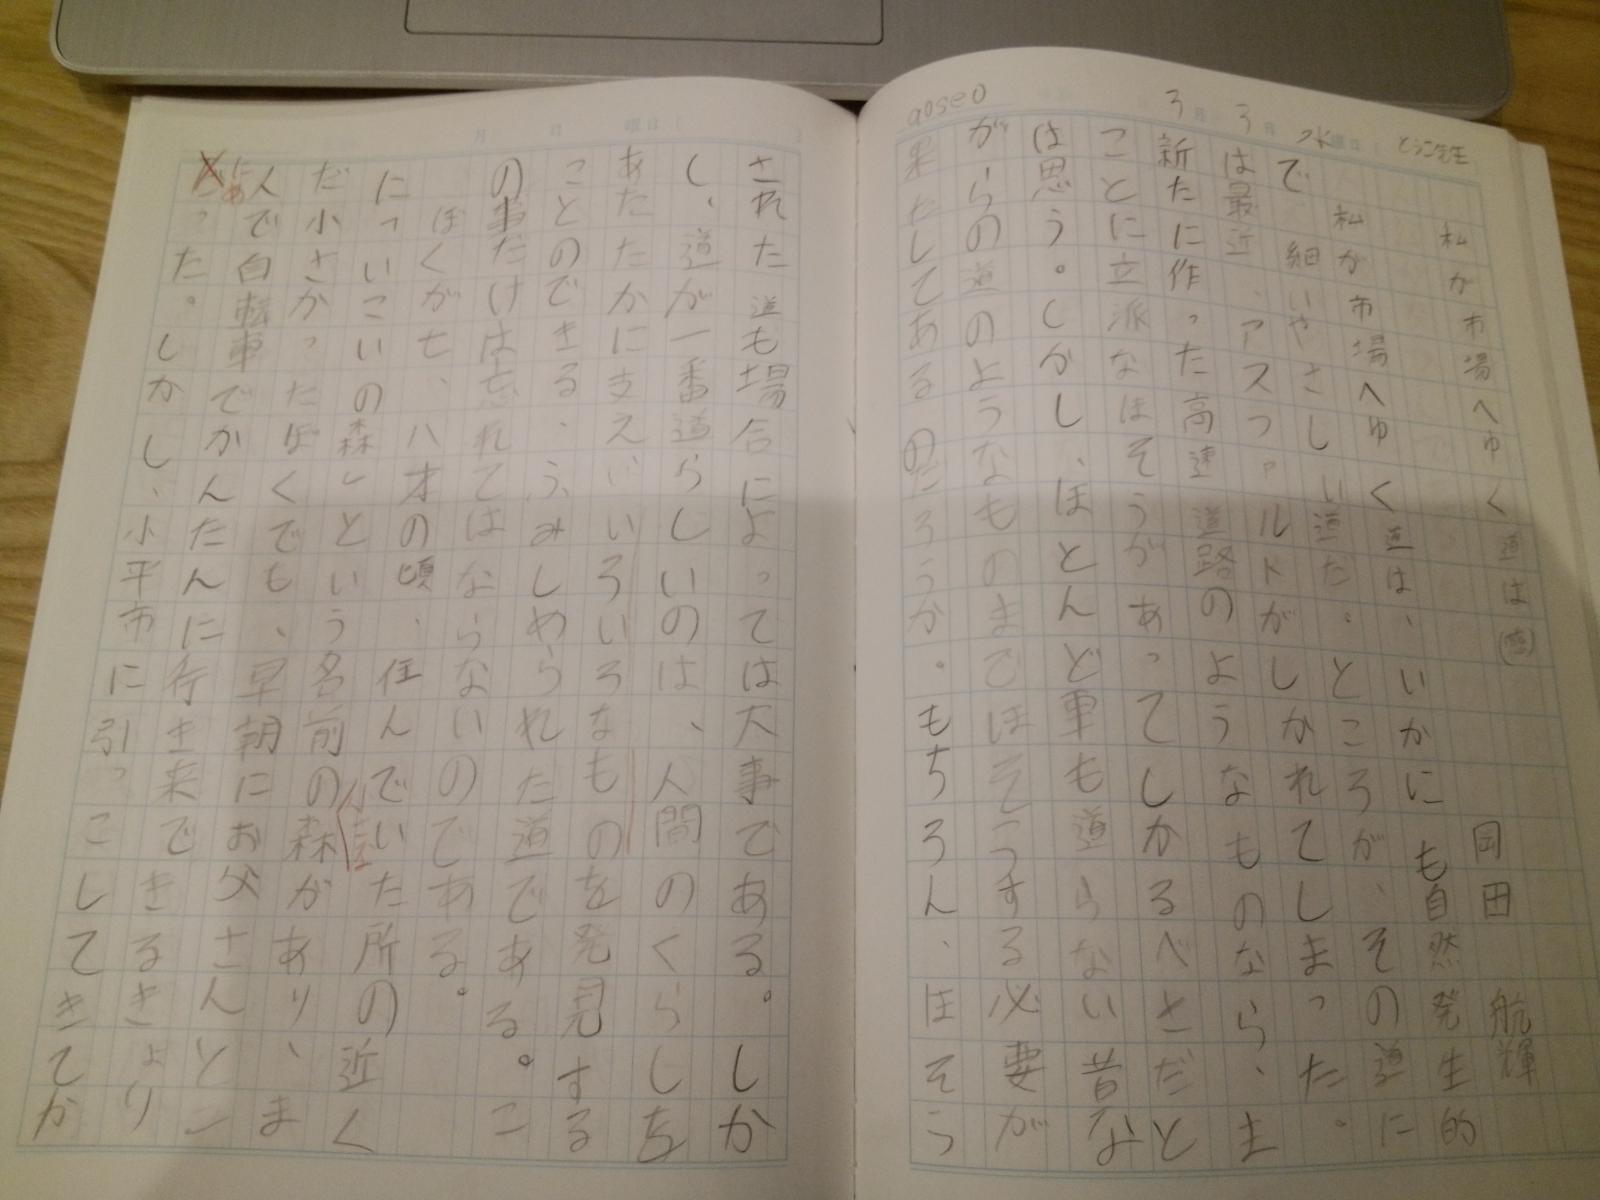 aose0 3月3日 水曜日( とうこ先生
私が市場へゆく道は(感)
岡田 航輝
私が市場へゆく道は、いかにも自然発生的
で細いやさしい道だ。ところが、その道に
は最近、アスファルトがしかれてしまった。
新たに作った高速道路のようなものなら、ま
ことに立派なほそうがあってしかるべきだと
は思う。しかし、ほとんど車も通らない昔な
がらの道のようなものまでほそうする必要が
果たしてあるのだろうか。もちろん、ほそう
された道も場合によっては大事である。しか
し、道が一番道らしいのは、人間のくらしを
あたたかに支えいろいろなものを発見する
ことのできる、ふみしめられた道である。こ
の事だけは忘れてはならないのである。
ぼくが七、八才の頃、住んでいた所の近く
に「いこいの森」という名前の森があり、ま
だ小さかったぼくでも、早朝にお父さんと二
人で自転車でかんたんに行き来できるきょり
にあった。しかし、小平市に引っこしてきてか
月 日 曜日(